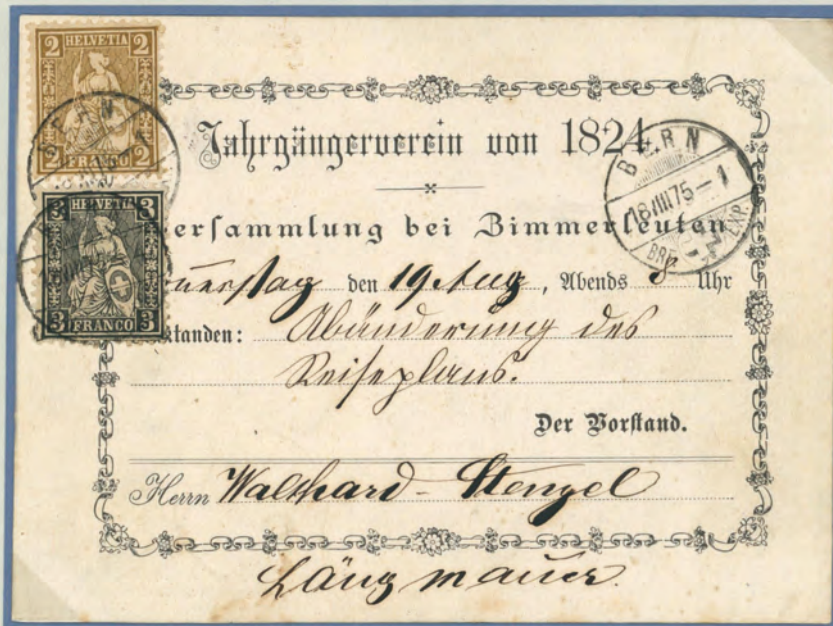 2 HELVETIA 2
2 FRANCO 2
BERN
3 HELVETIA 3
3 FRANCO 3
Jahrgängerverein von 1824
BERN
18 VIII 75 – 1
BRF. EXP.
ersammlung bei Zimmerleuten
nnerstag den 19 Aug, Abends 8 Uhr
standen: Abänderung des
Reiseplans.
Der Vorstand.
Herrn Walthard-Stengel
Längmauer.